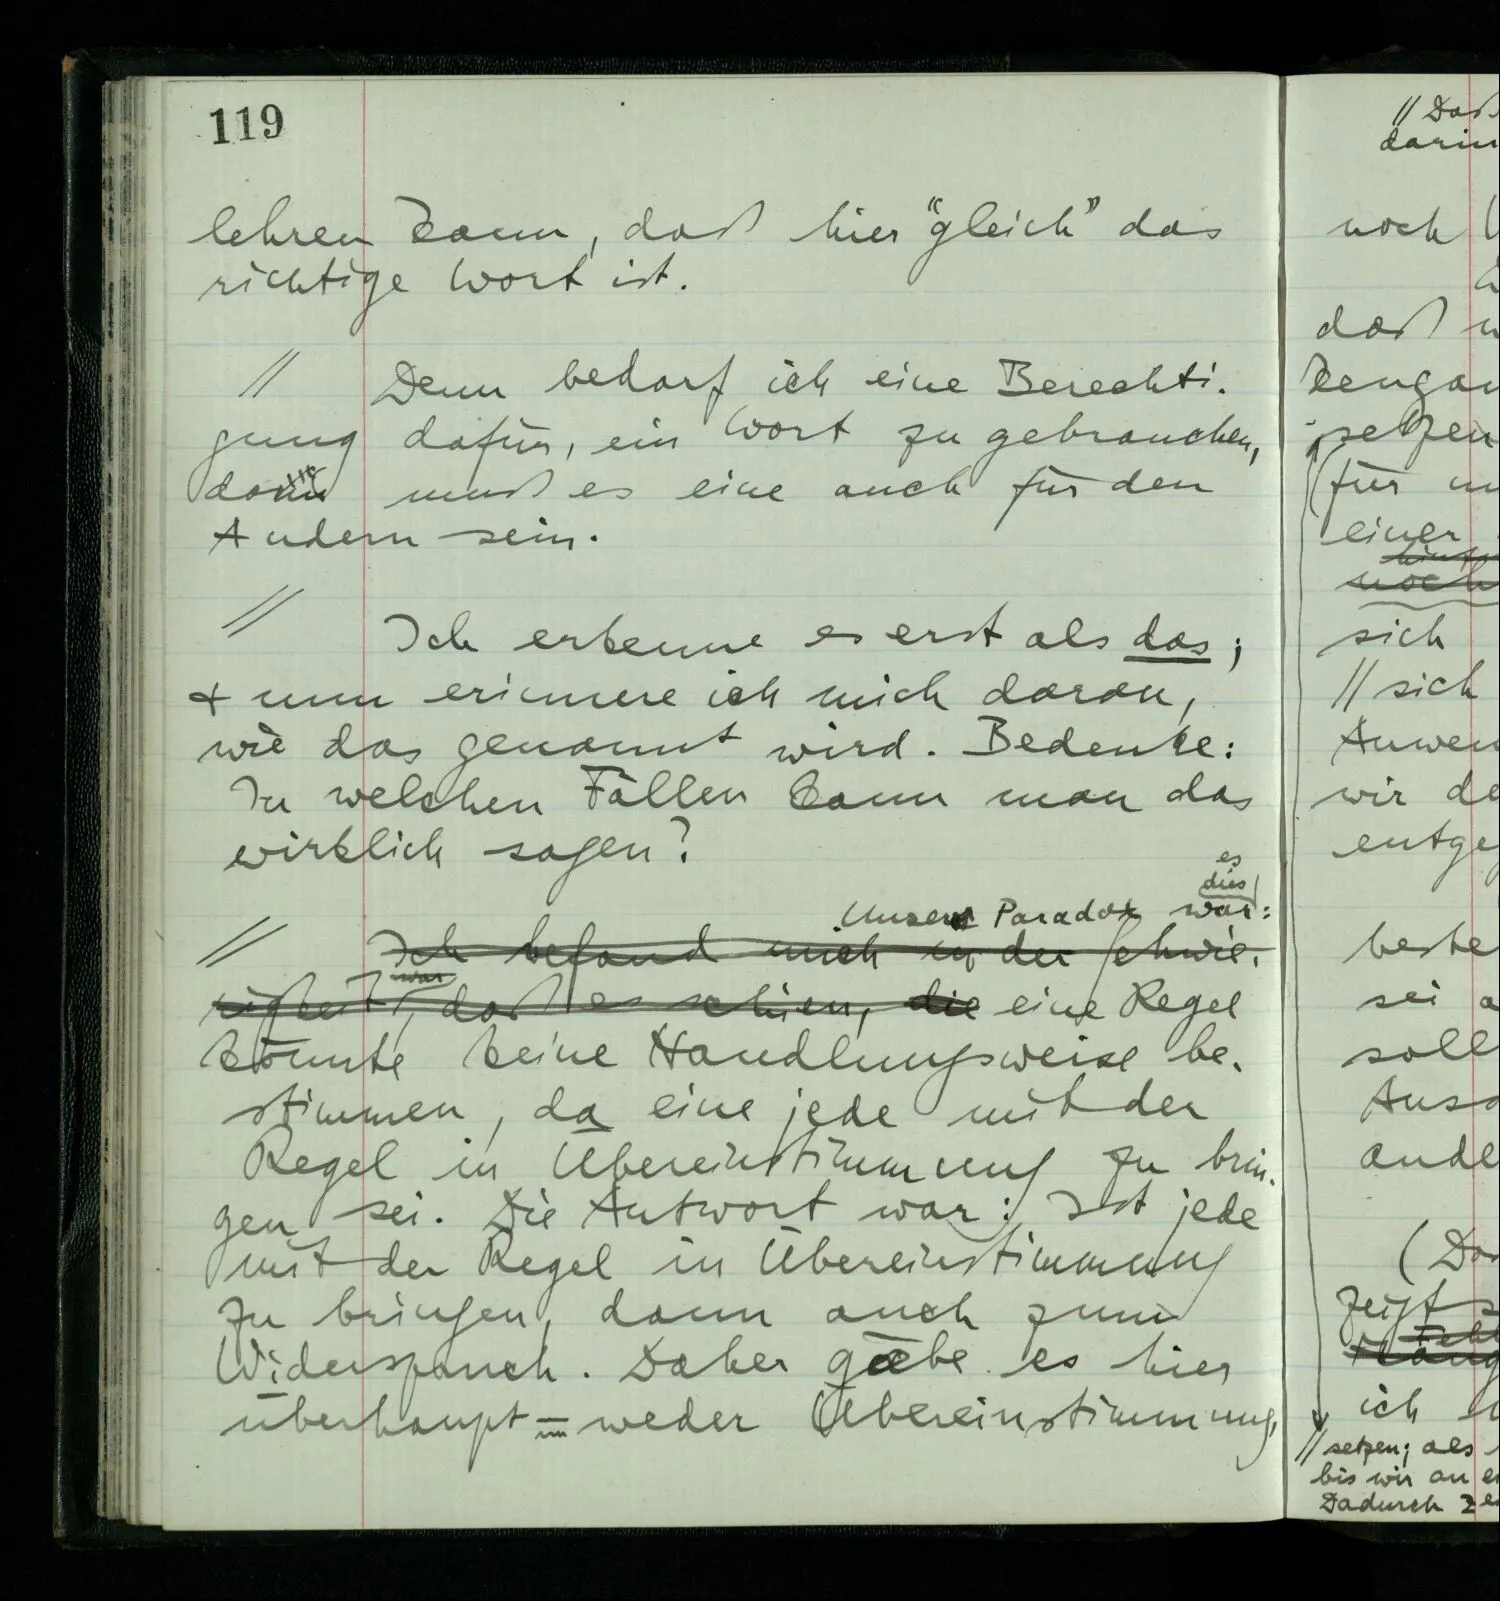 119
lehren kann, daß hier "gleich" das
richtige Wort ist.
// Denn bedarf ich eine Berechti-
gung dafür, ein Wort zu gebrauchen,
dann muß es eine auch für den
Andern sein.
// Ich erkenne es erst als das;
& nun erinnere ich mich daran,
wie das genannt wird. Bedenke:
In welchen Fällen kann man das
wirklich sagen?
es
dies
Unser Paradox war:
// Ich befand mich in der Schwie-
war
rigkeit, daß es schien, die eine Regel
könnte keine Handlungsweise be-
stimmen, da eine jede mit der
Regel in Übereinstimmung zu brin-
gen sei. Die Antwort war: Ist jede
mit der Regel in Übereinstimmung
zu bringen, dann auch zum
Widerspruch. Daher gäbe es hier
überhaupt weder Übereinstimmung,
// Daß
darin
noch
daß
setzen
für
einer
noch
sich
// sich
wir
sei
soll
(
ich
// setzen; als
bis wir an
Dadurch